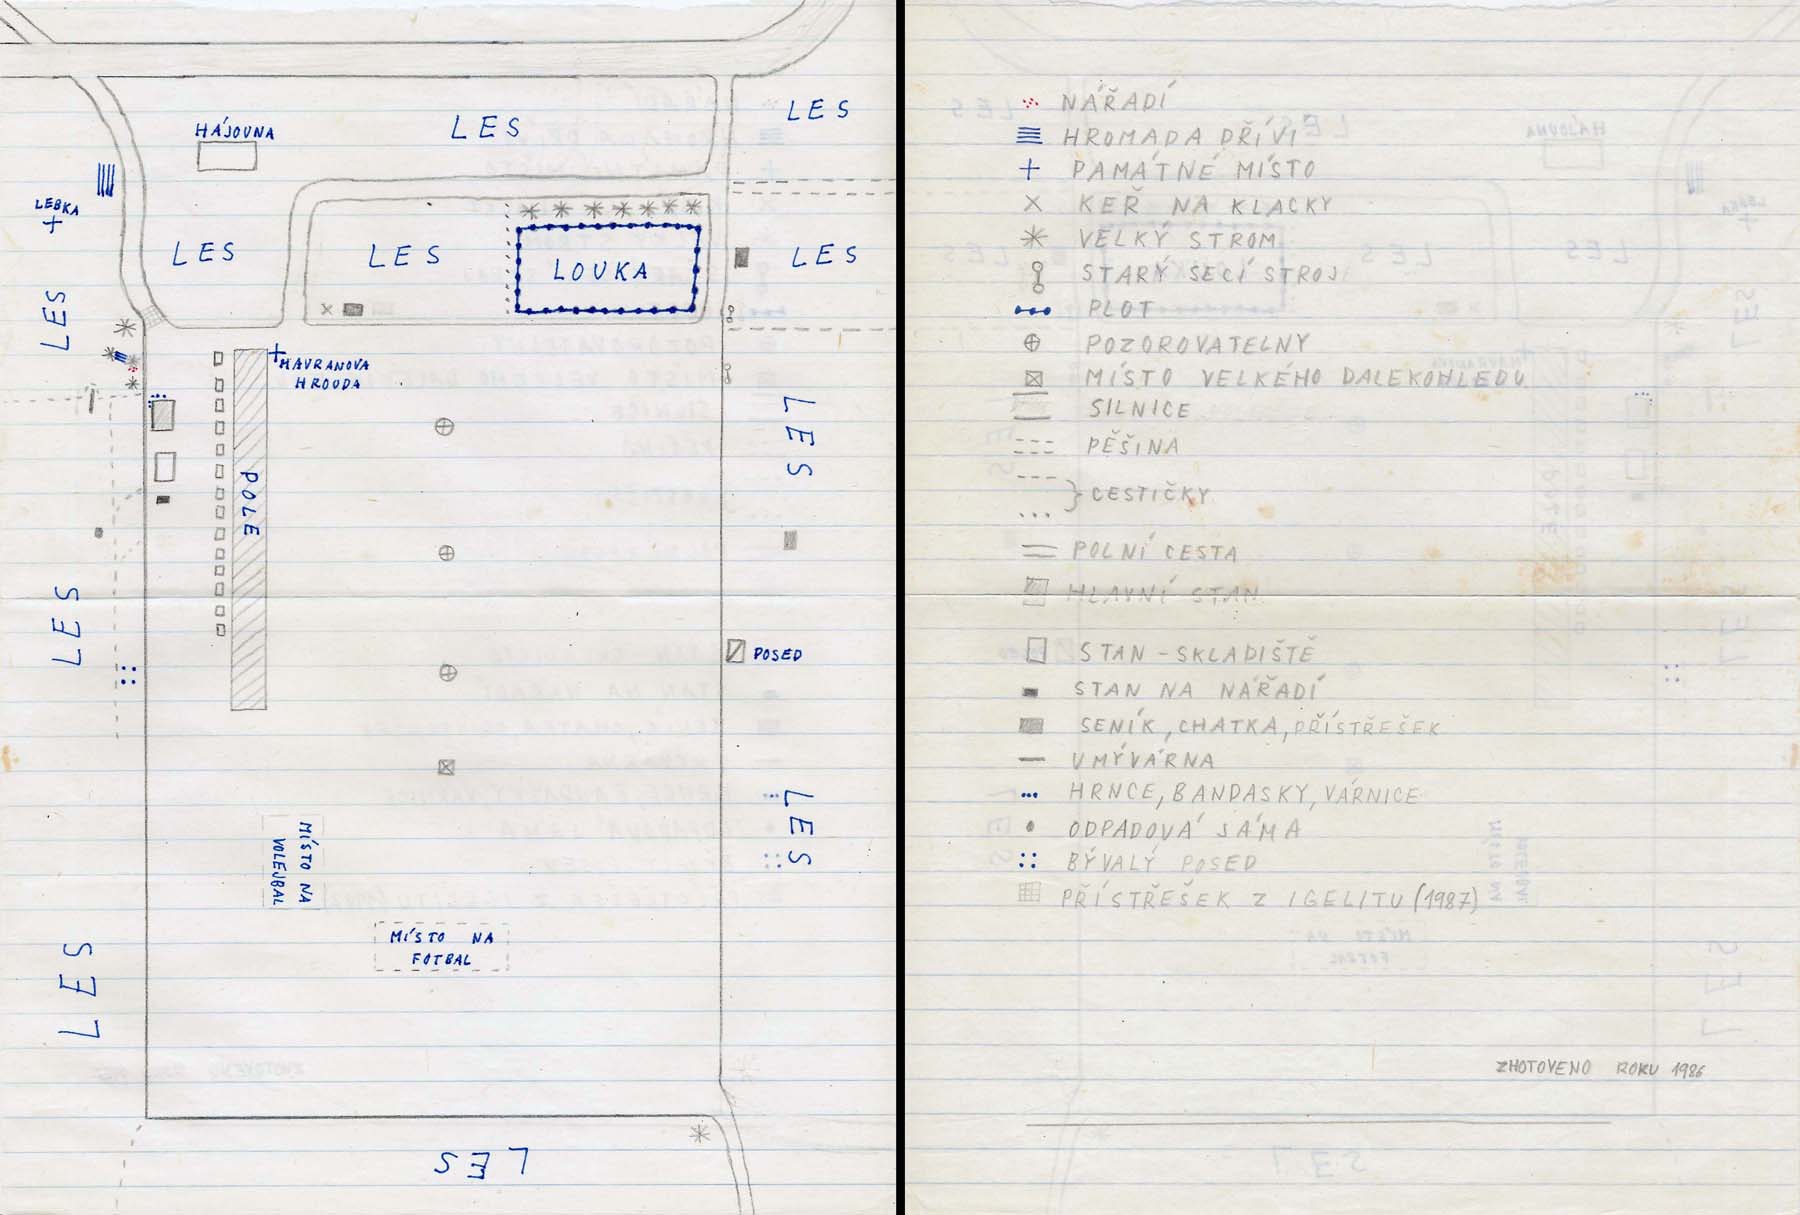 LES
HÁJOVNA
LES
LEBKA
LES
LES
LES
LOUKA
LES
HAVRANOVA
HROUDA
LES
POLE
LES
POSED
LES
MÍSTO NA
VOLEJBAL
MÍSTO NA
FOTBAL
LES
LES
NÁŘADÍ
HROMADA DŘÍVÍ
PAMÁTNÉ MÍSTO
KEŘ NA KLACKY
VELKÝ STROM
STARÝ SECÍ STROJ
PLOT
POZOROVATELNY
MÍSTO VELKÉHO DALEKOHLEDU
SILNICE
PĚŠINA
CESTIČKY
POLNÍ CESTA
HLAVNÍ STAN
STAN - SKLADIŠTĚ
STAN NA NÁŘADÍ
SENÍK, CHATKA, PŘÍSTŘEŠEK
UMÝVÁRNA
HRNCE, BANDASKY, VÁRNICE
ODPADOVÁ JÁMA
BÝVALÝ POSED
PŘÍSTŘEŠEK Z IGELITU (1987)
ZHOTOVENO ROKU 1986